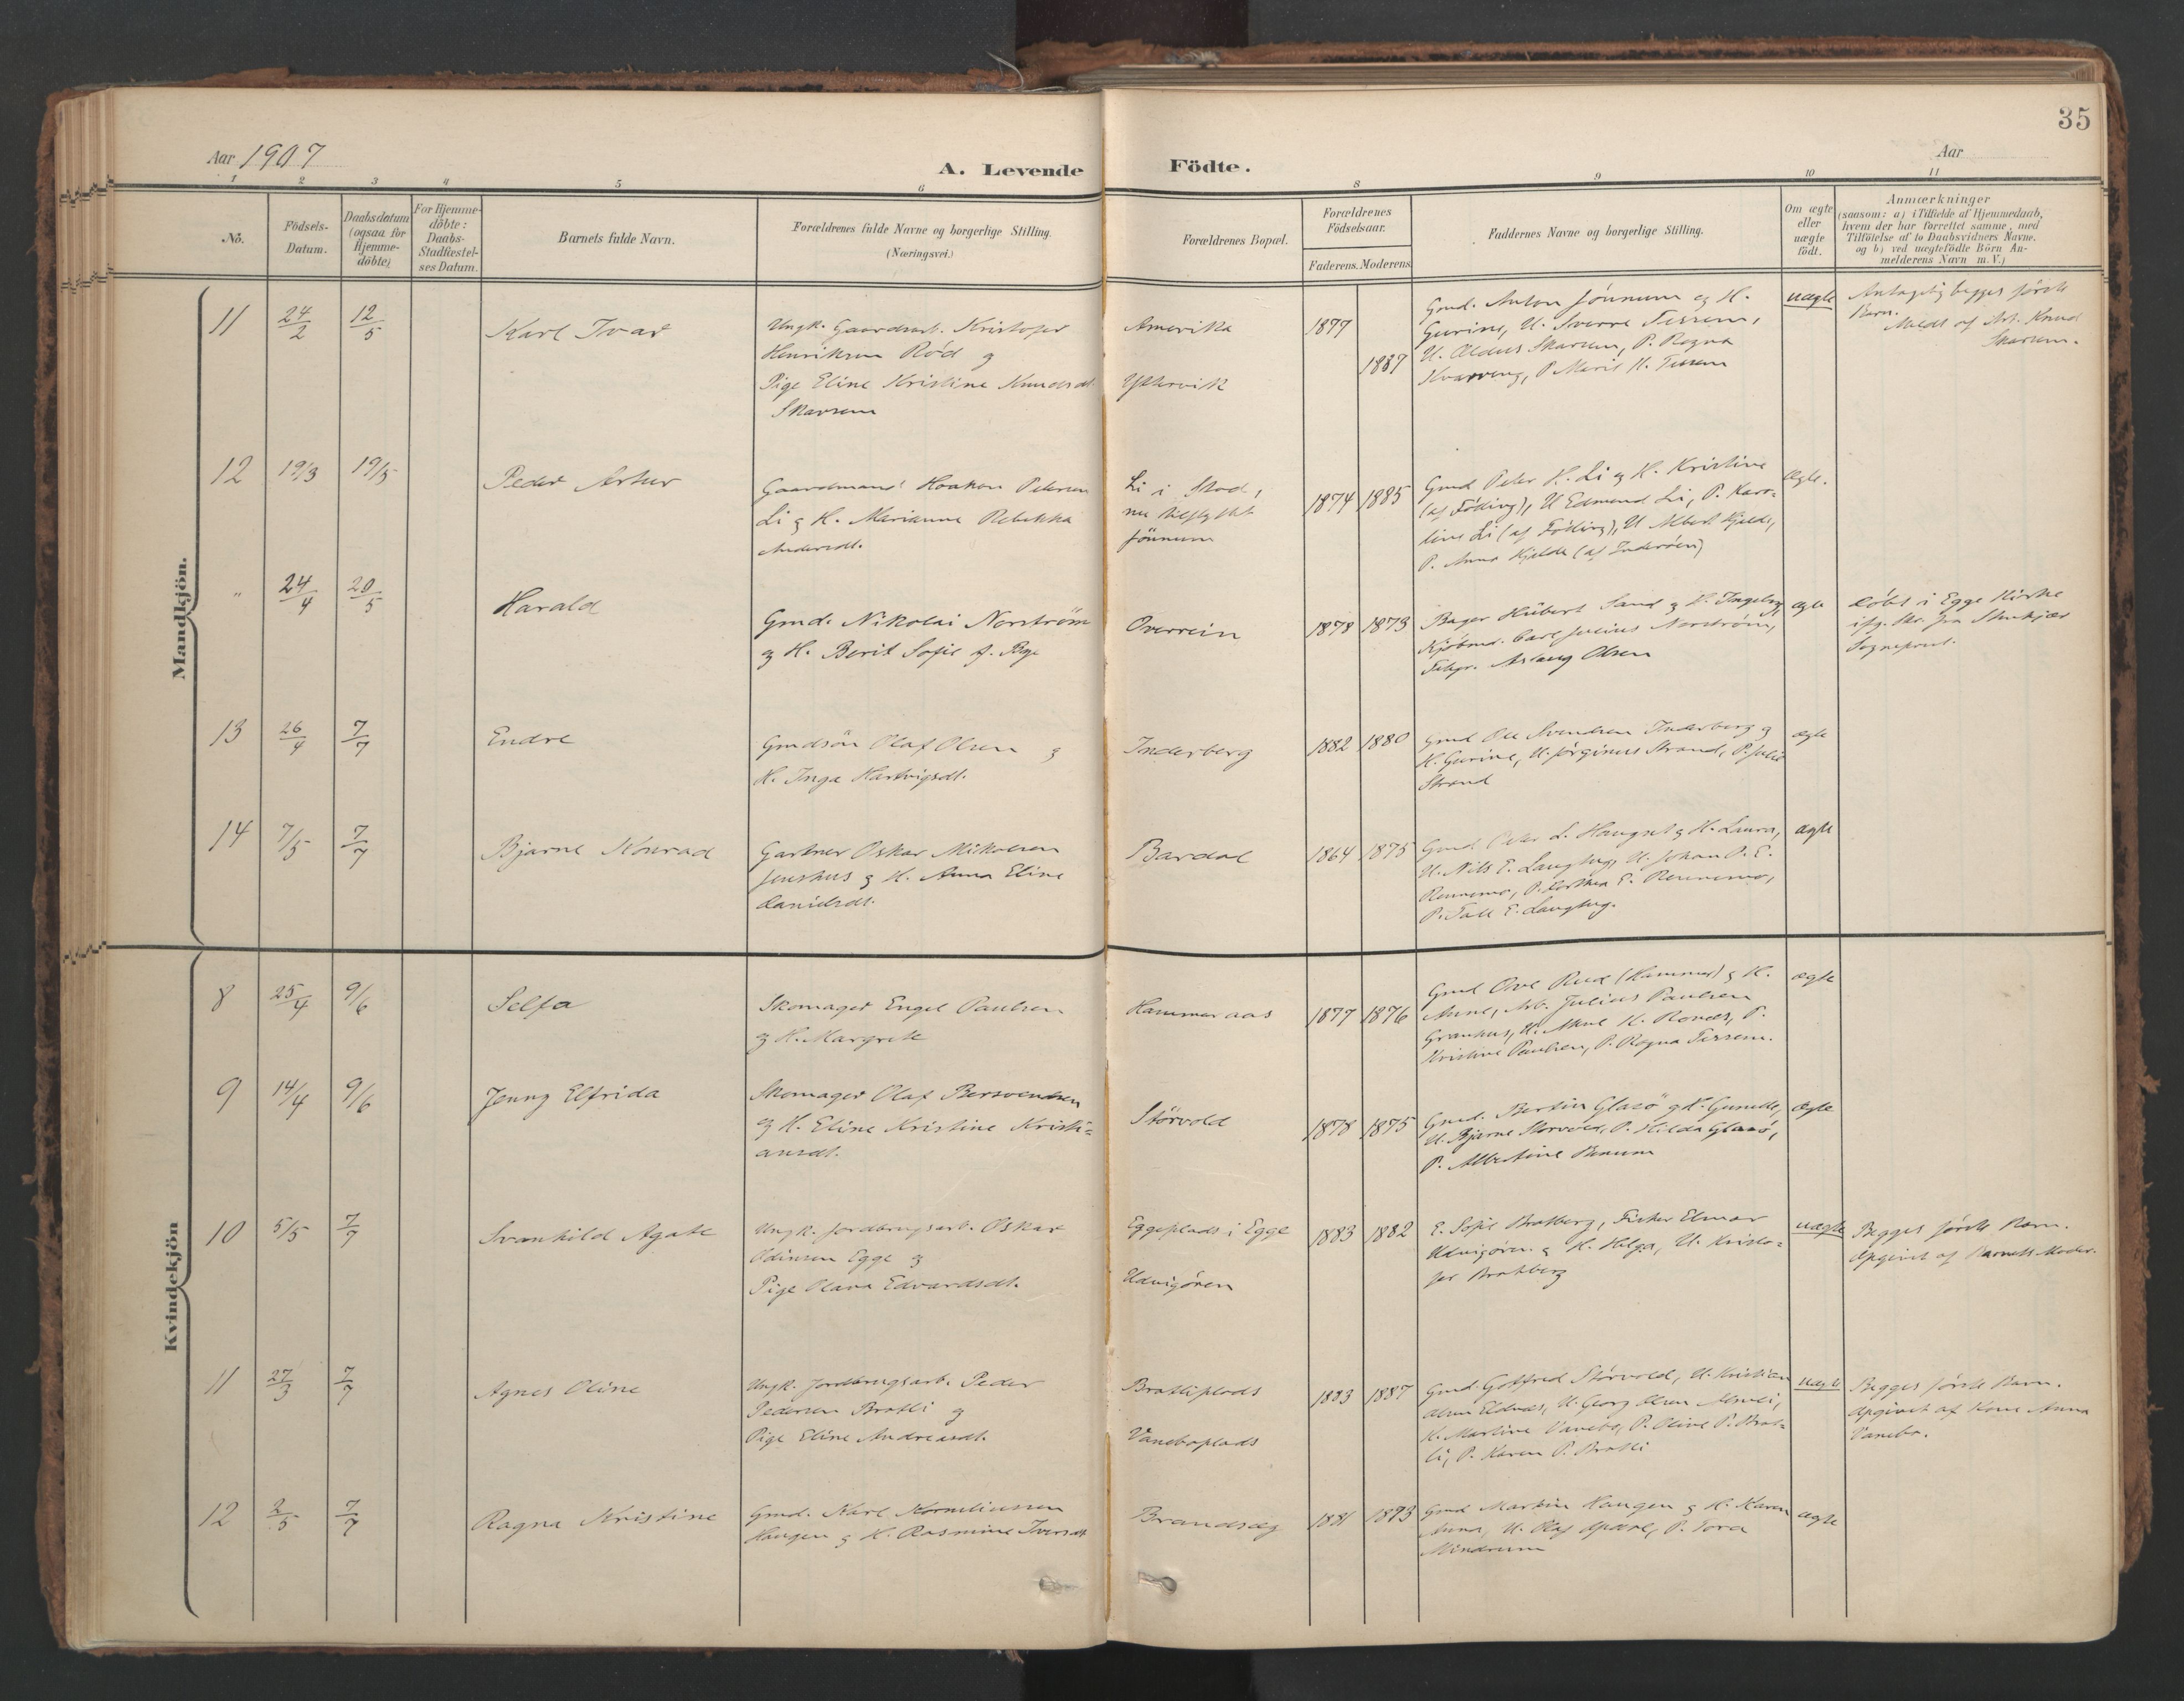 35
Aar 1907
A. Levende Födte.
Aar
1 2 3 4 5 6 8 9 10 11
No.
Födsels-
Datum.
Daabsdatum
(ogsaa for
Hjemme-
döbte)
For Hjemme-
döbte:
Daabs-
Stadfæstel-
ses Datum.
Barnets fulde Navn.
Forældrenes fulde Navne og borgerlige Stilling.
(Næringsvei.)
Forældrenes Bopæl.
Forældrenes
Födselsaar.
Faderens. Moderens
Faddernes Navne og borgerlige Stilling.
Om ægte
eller
uægte
födt.
Anmærkninger
(saasom: a) i Tilfælde af Hjemmedaab,
hvem der har forrettet samme, med
Tilföielse af to Daabsvidners Navne,
og b) ved uægtefödte Börn An-
melderens Navn m. V.)
Mandkjön.
11 24/2 12/5 Karl Ivar
Ungk. Gaardsarb. Kristofer
Henriksen Röd og
Pige Eline Kristine Knudsdt.
Skavsem
Amerika
Yttervik
1877
1887
Gmd. Anton Jönnum og H.
Gurine, U. Sverre Tessem,
U. Aldus Skavsem, P. Ragna
Kvarveng, P. Marit H. Tessem
uægte
Antagelig begges förste
Barn.
Meldt af Arb. Knud
Skavsem.
12 19/3 19/5 Peder Artur
Gaardmand Haakon Petersen
Li og H. Marianna Rebekka
Andersdt.
Li i Stod,
nu tilflyttet
Jönnum
1874 1885
Gmd Peter H. Li og H. Kristine
(af Föding), U Edmund Li, P. Karo-
line Li (af Föding), U Albert Kjelde,
P. Anna Kjelde (af Inderöen)
Ægte.
" 24/4 20/5 Harald
Gmd. Nikolai Norström
og H. Berit Sofie f. By
Overrein
1878 1873
Bager Hubert Sand og H. Ingeborg,
Kjöbmd. Carl Julius Norström,
Aslaug Olsen
ægte
Döbt i Egge Kirke
ifg. Skr. fra Stenkjær
Sogneprest.
13 26/4 7/7 Endre
Gmdsön Olaf Olsen og
H. Inga Hartvigsdt.
Inderberg
1882 1880
Gmd Ole Svendsen Inderberg og
H. Gurine, U. Jörginus Strand, P. Julie
Strand
ægte
14 7/5 7/7 Bjarne Konrad
Gartner Oskar Mikalsen
Jenshus og H. Anna Eline
Danielsdt.
Bardal
1864 1875
Gmd Peter L. Haugset og H. Laura,
U. Nils E. Langhug, U. Johan P. E.
Rennemo, P. Dorthea E. Rennemo,
P. E. Langhug.
ægte
Kvindekjön
8 25/4 9/6 Selfa
Skomager Engel Paulsen
og H. Margrete
Hammeraas
1877 1876
Gmd Ove Rud (Hammer) og H.
Anne, Arb. Julius Paulsen
Granhus, U. H. Ronæs, P.
Kristine Paulsen, P. Ragna Tessem.
ægte
9 14/4 9/6 Jenny Elfrida
Skomager Olaf Bersvendsen
og H. Eline Kristine Kristi-
ansdt.
Störvold
1878 1875
Gmd. Bertin Glasö og H. Gunille,
U. Bjarne Störvold, P. Hilda Glasö,
P. Albertine
ægte
10 5/5 7/7 Svanhild Agate
Ungk. Jordbrugsarb. Oskar
Odinsen Egge og
Pige Olava Edvardsdt.
Eggeplads i Egge
Udvigören
1883 1882
E. Sofie Bratberg, Fisker Elmar
Udvigören og H. Helga, U. Kristo-
fer Bratberg
uægte
Begges förste Barn.
Opgivet af Barnets Moder.
11 27/3 7/7 Agnes Oline
Ungk. Jordbrugsarb. Peder
Pedersen Bratli og
Pige Eline Andreasdt.
Bratliplads
Vaneboplads
1883 1887
Gmd. Gotfred Störvold, U. Kristian
Olsen Eldnes, U. Georg Olsen
K. Martine Vanebo, P. Oline P. Brat-
li, P. Karen P. Bratli
uægte
Begges förste Barn.
Opgivet af Kone Anna
Vanebo.
12 2/5 7/7 Ragna Kristine
Gmd. Karl Korneliussen
Haugen og H. Rasmine Iversdt
Brandsæg
1881 1873
Gmd Martin Haugen og H. Karen
Anna, U. Olaf Opdal, P. Tora
Mindrum
ægte